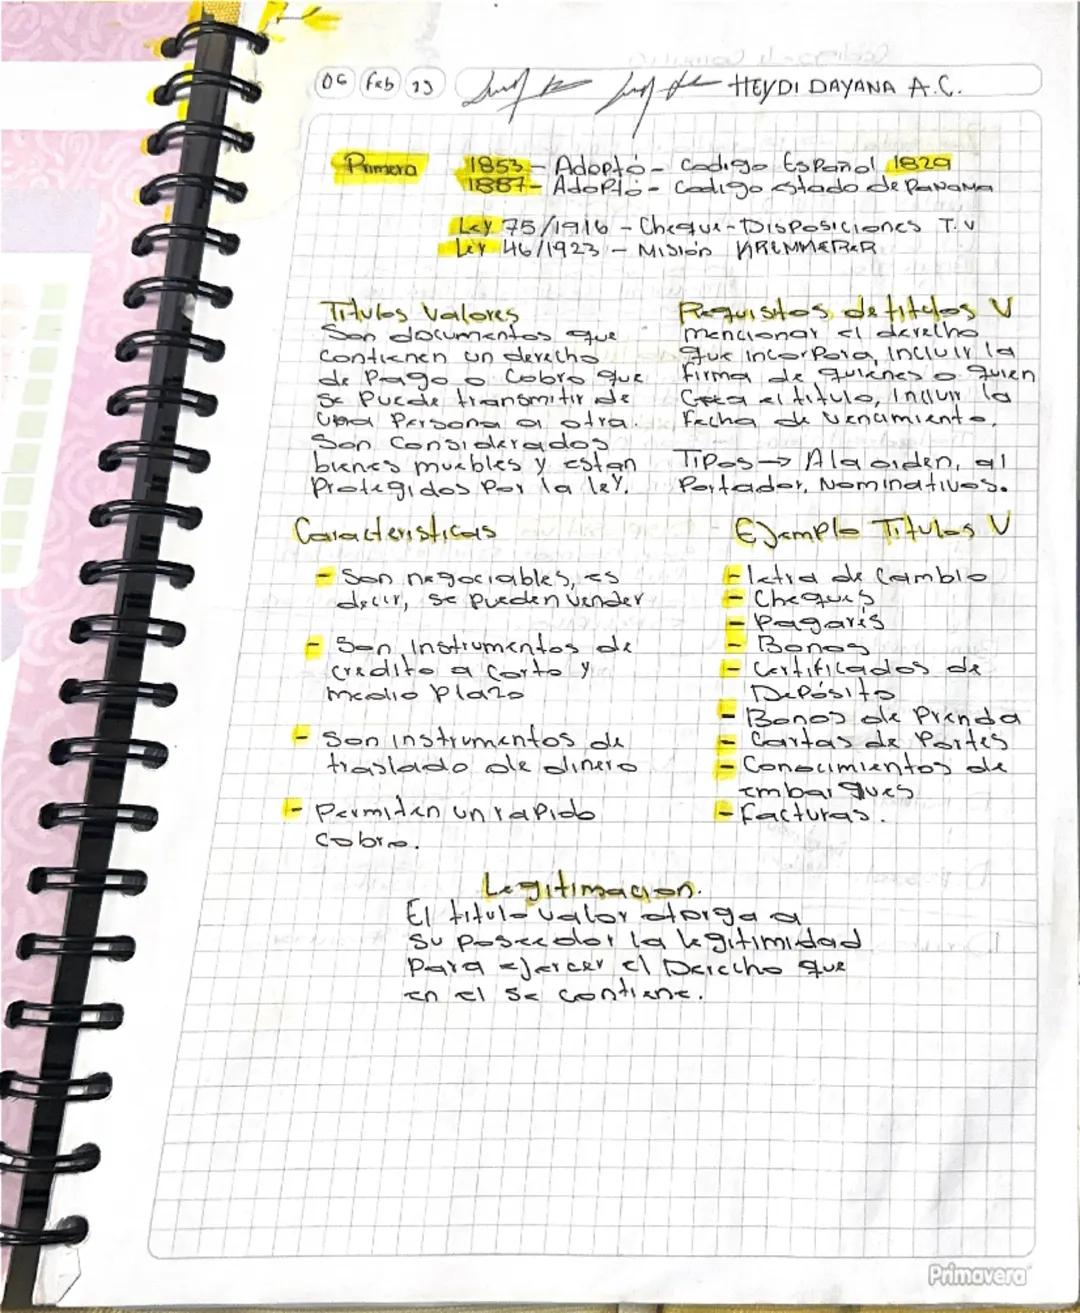 06 Feb 23 HEYDI DAYANA A.C.
Primera 1853 - Adoptó - Codigo Español 1829
1887 - Adoptó - Codigo estado de PANAMA
Ley 75/1916 - Cheque - Disposiciones T.V
Ley 46/1923 - Misión KREMMERER
Titulos Valores
Son documentos que
contienen un derecho
de Pago o Cobro que
se puede transmitir de
una Persona a otra.
Son Considerados
bienes muebles y estan
Protegidos Por la ley.
Requisitos de titulos V
mencionar el derecho
que incorpora, incluir la
firma de quienes o quien
Crea el titulo, incluir la
Fecha de vencimiento.
Tipos → A la orden, al
Portador, Nominativos.
Caracteristicas
- Son negociables, es
decir, se pueden vender
- Son Instrumentos de
credito a Corto y
medio Plazo
- Son instrumentos de
traslado de dinero
- Permiten un rapido
cobro.
Ejemplo Titulos V
- letra de Cambio
- Cheques
- Pagarés
- Bonos
- Certificados de
Depósito
- Bonos de Prenda
- Cartas de Portes
- Conocimientos de
embarques
- Facturas.
Legitimacion.
El titulo valor otorga a
su poseedor la legitimidad
Para ejercer el Derecho que
en el se contiene.
Primavera